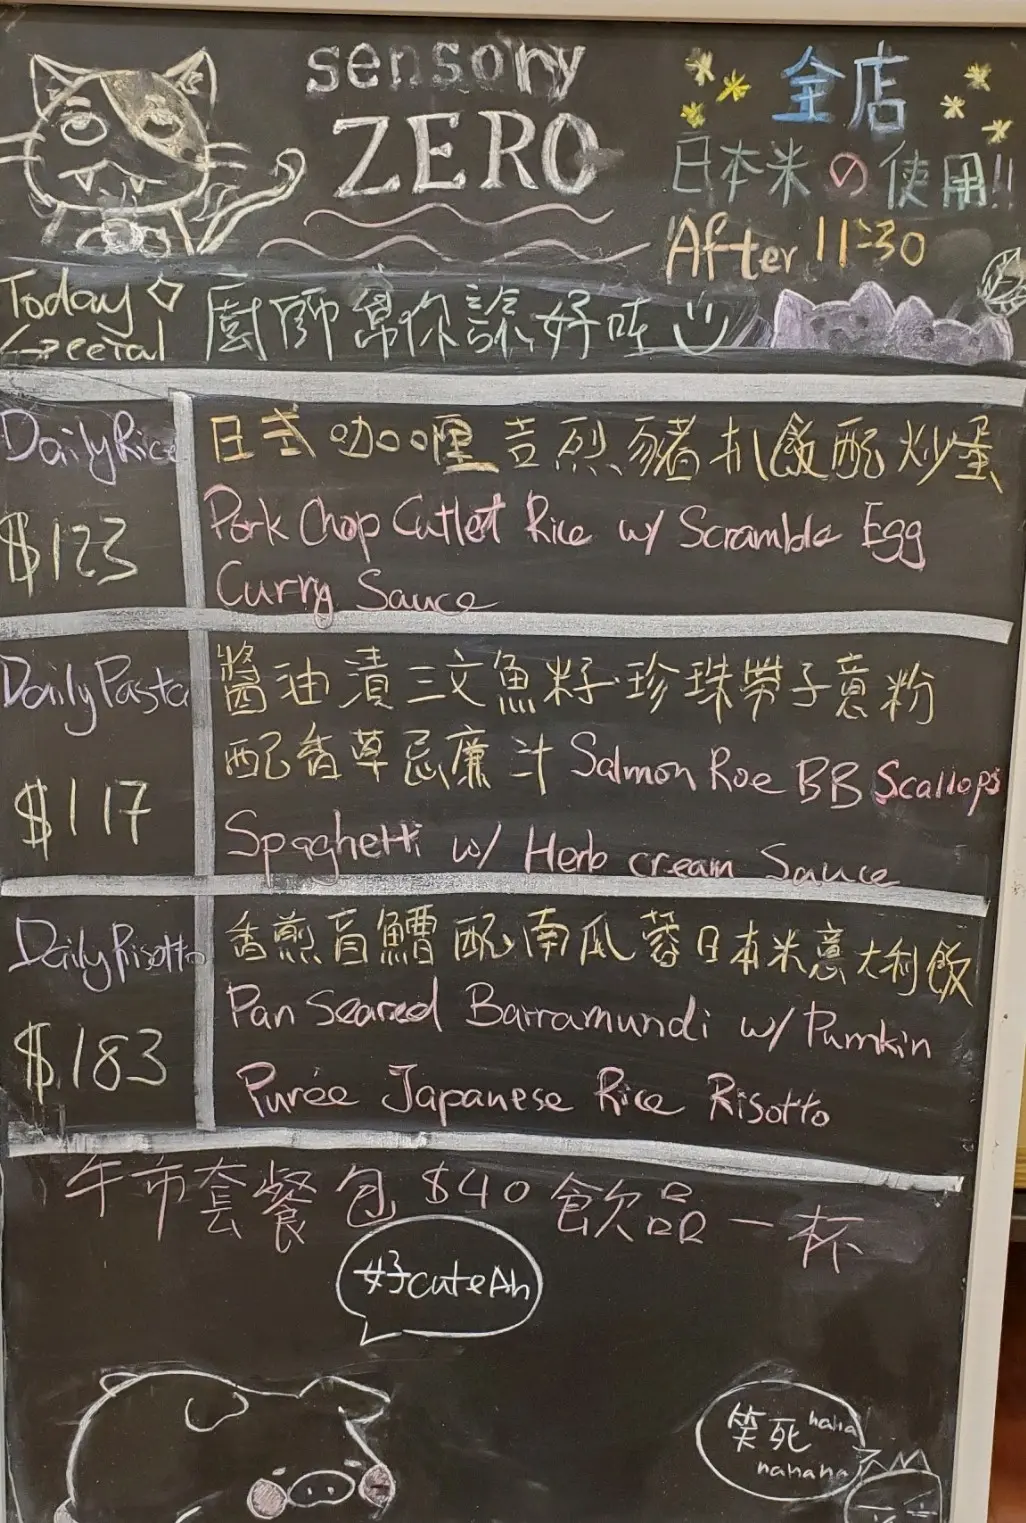 sensory
ZERO
全店
日本米の使用!!
After 11:30
Today
Special
廚師幫你諗好咗
Daily Rice
$123
日式咖哩吉烈豬扒飯配炒蛋
Pork Chop Cutlet Rice w/ Scramble Egg
Curry Sauce
Daily Pasta
$117
醬油漬三文魚籽珍珠帶子意粉
配香草忌廉汁 Salmon Roe BB Scallops
Spaghetti w/ Herb cream Sauce
Daily Risotto
$183
香煎盲鰽配南瓜蓉日本米意大利飯
Pan Seared Barramundi w/ Pumkin
Purée Japanese Rice Risotto
午市套餐包$40飲品一杯
好cuteAh
笑死 haha
hahaha